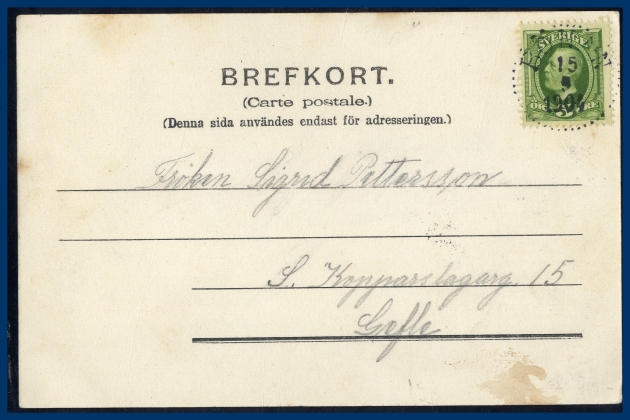 SVERIGE
15
1904
BREFKORT.
(Carte postale.)
(Denna sida användes endast för adresseringen.)
Fröken Sigrid Pettersson
S. Kopparslagarg. 15
Gefle